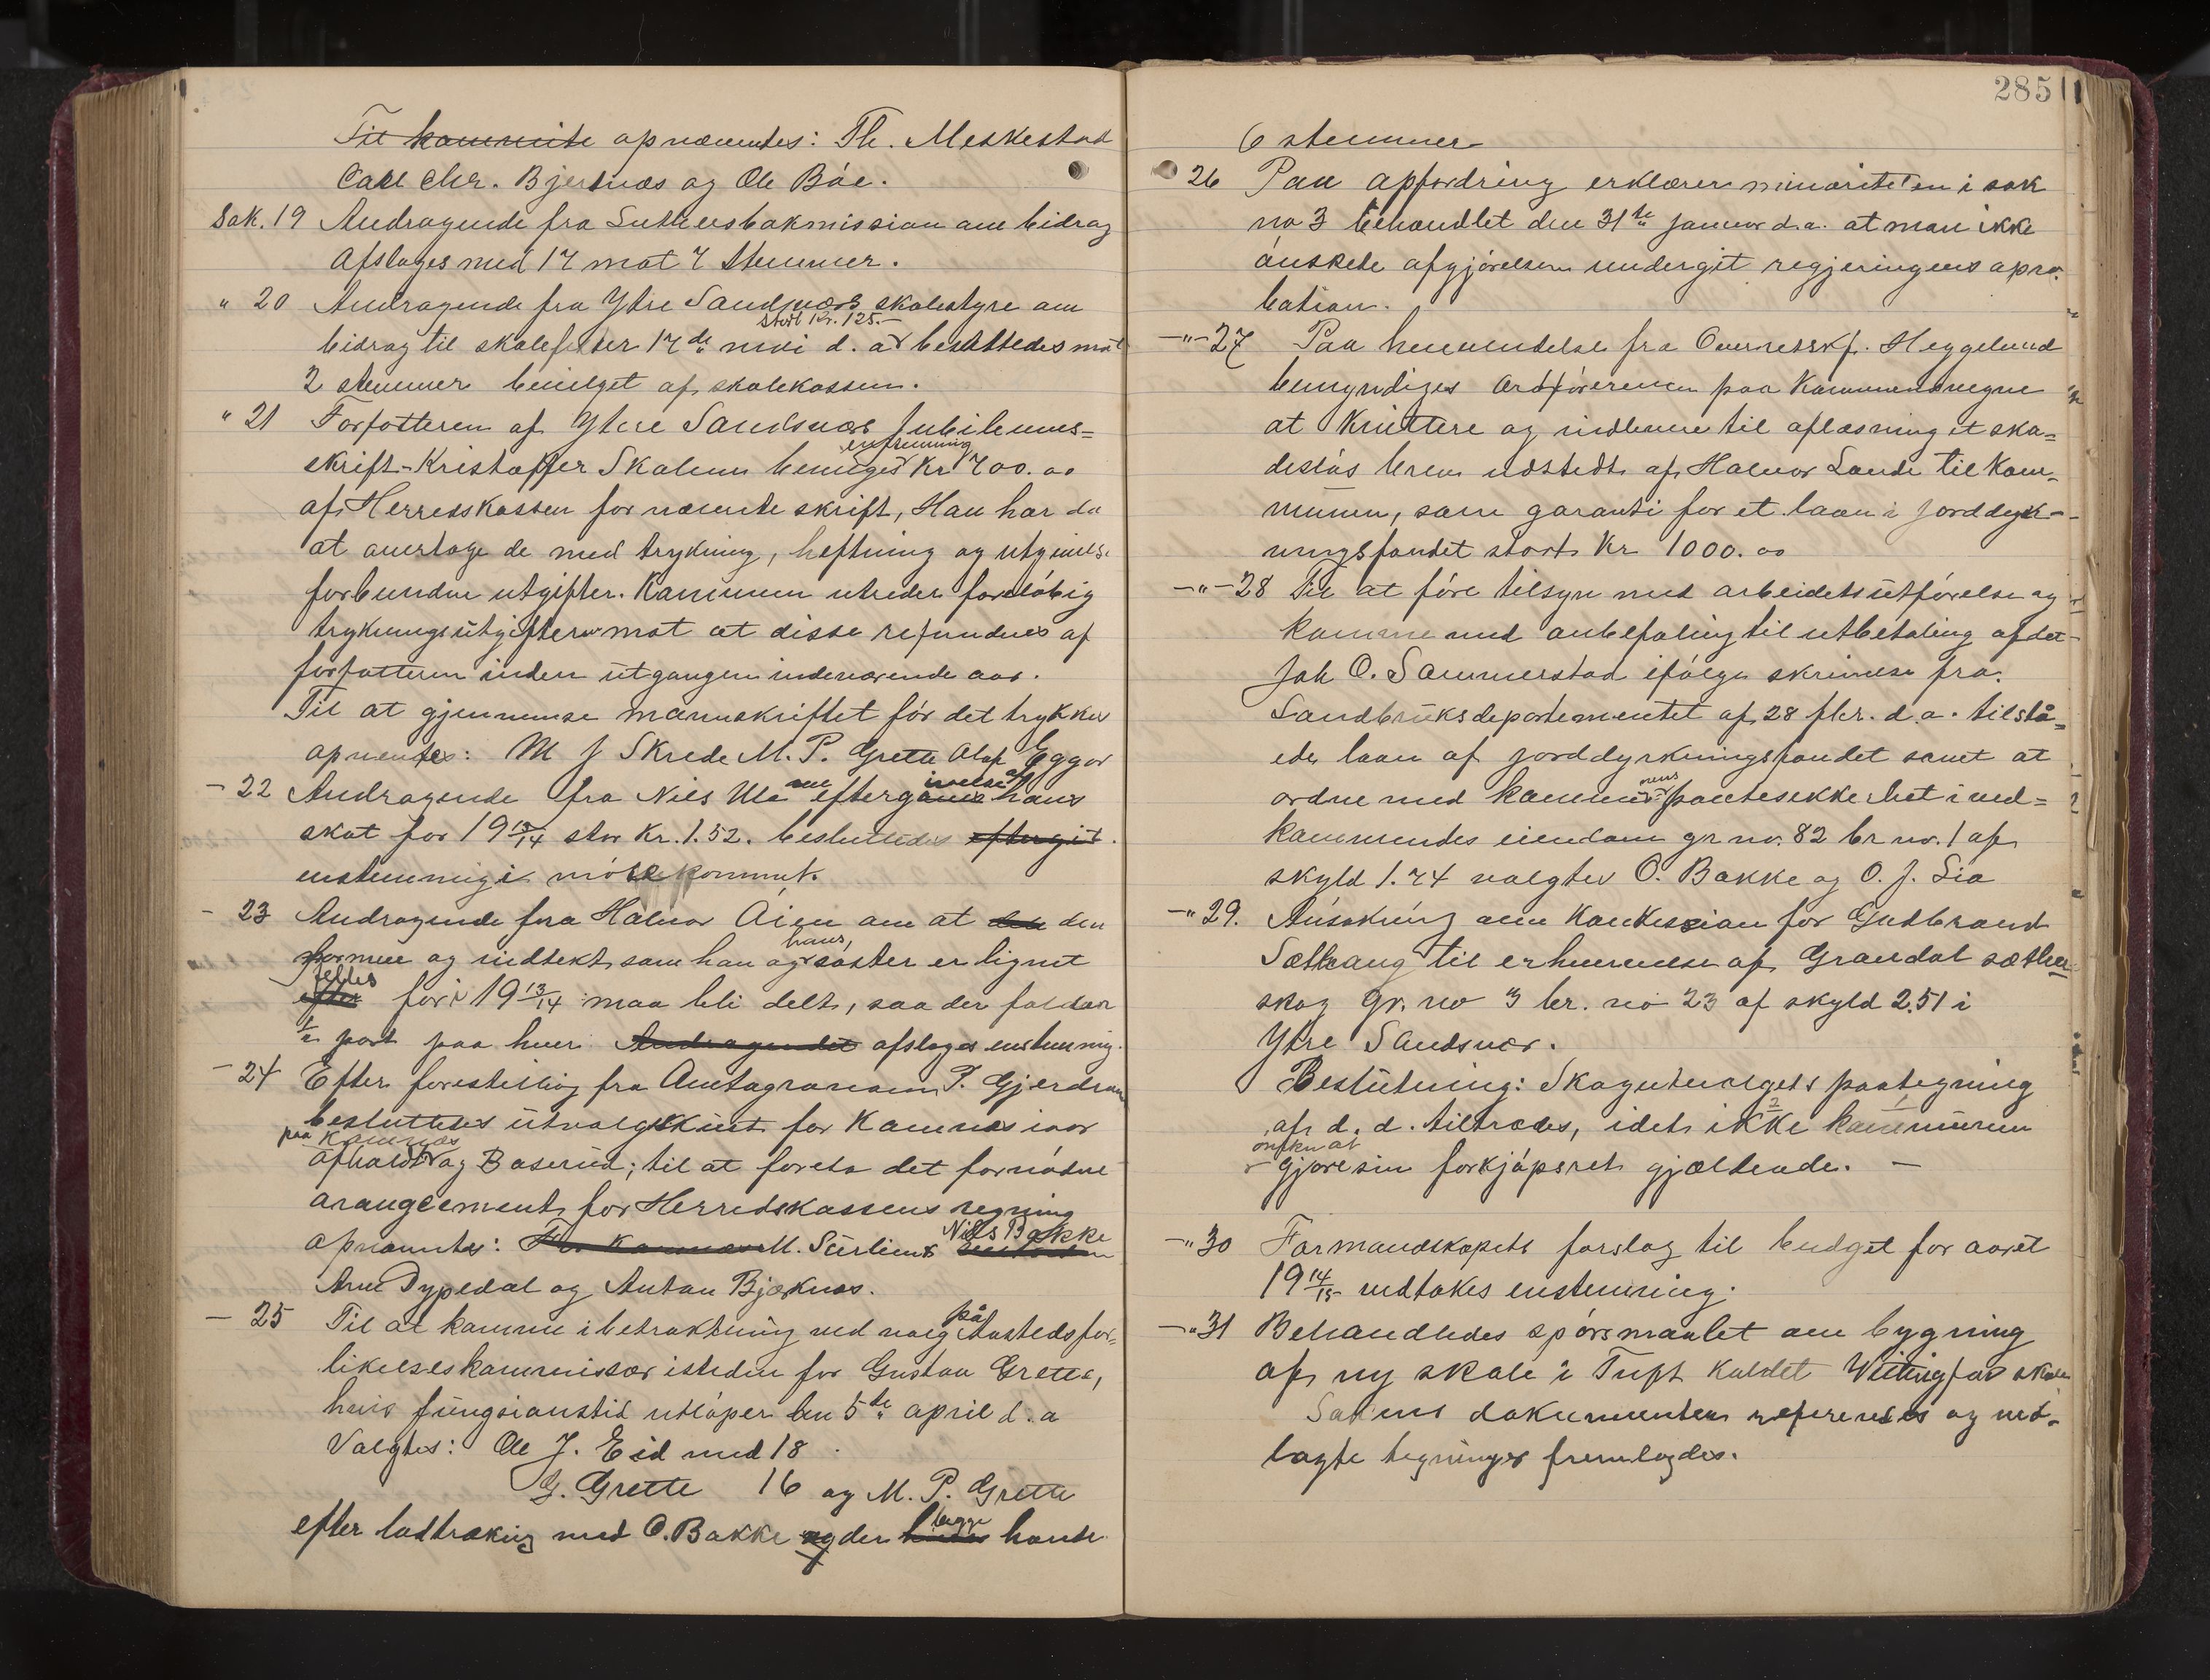 Til kommite opnævntes: Th. Meskestad
Carl Chr. Bjertnæs og Ole Bøe.
Sak. 19 Andragende fra om bidrag
Afslages med 17 mot 7 stemmer.
" 20 Andragende fra Ytre Sandsværs skolestyre om
stort Kr. 125.-
bidrag til skolefester 17de mai d. år besluttedes mot
2 stemmer bevilget af skolekassen.
" 21 Forfatteren af Ytre Sandsværs Jubileums=
enstemmig
skrift - Kristoffer Skolmen bevilges Kr 700.00
af Herredskassen for nævnte skrift, Han har da
at overtage de med trykning, heftning og utgivelse
forbundne utgifter. Kommunen utreder foreløbig
trykningsutgifterne mot at disse refunderes af
forfatteren inden utgangen indeværende aar.
Til at gjennemse manuskriftet før det trykkes
opnevntes: M J Skrede M. P. Grette Olaf Eggar
- 22 Andragende fra Nils Ula om eftergivelse af hans
skat for 19 13/14 stor Kr. 1.52. besluttedes eftergit.
enstemmig imøtekommet.
- 23 Andragende fra Halvor Åien om at den den
hans,
formue og indtekt som han og søster er lignet
felles
efter for i 19 13/14 maa bli delt, saa der falder
1/2 part paa hver. Andragendet afslages enstemmig.
- 24 Efter forestilling fra Amtagronom P. Gjerdrum
besluttedes utvalgskust for Komnæs iaar
paa Komnæs
afholdt og Baserud; til at foreta det fornødne
arangcement for Herredskassens regning
Nils Bakke
opnævntes: M. Sørlien &
Arne Dypedal og Anton Bjerknæs.
- 25 Til at komme i betraktning ved valg på Anstedsfor-
likelseskommissær isteden for Gustav Grette,
hvis fungsionstid utløper den 5te april d.a
Valgtes: Ole J. Eid med 18
G. Grette 16 og M. P. Grette
begge
efter lodtrækning med O. Bakke og der havde
285
6 stemmer
26 Paa opfordring erklærer minoriteten i sak
no 3 behandlet den 31te januar d.a. at man ikke
ønskede afgjørelsen undergit regjeringens apro-
bation.
-"- 27 Paa henvendelse fra Overretsskf. Heggelund
bemyndiges ordføreren paa Kommunens vegne
at kvittere og indlevere til aflæsning et ska=
desløs brev udstedt af Halvor Lande til Kom-
munen, som garanti for et laan i jorddyrk-
ningsfondet stort Kr 1000.00
-"- 28 Til at føre tilsyn med arbeidets utførelse og
komme med anbefaling til utbetaling af det
Joh O. Sommerstad ifølge skrivelse fra
Landbruksdepartementet af 28 fbr. d.a. tilstå=
ede laan af jorddyrkningsfondet samt at
nens
ordne med kommunens pantesikkerhet i ved=
kommendes eiendom gr no. 82 br no. 1 af
skyld 1.74 valgtes O. Bakke og O. J. Lia
-" 29. Ansøkning om Konkession for Gudbrand
til erhvervelse af Grandal sætter
skog Gr. no 3 br. no 23 af skyld 2.51 i
Ytre Sandsvær.
Beslutning: Skogutvalgets paategning
af d. d. tiltrædes, idet ikke kommunen
ønsker at
gjøre sin forkjøpsret gjældende. -
-" 30 Formandskapets forslag til budget for aaret
19 14/15 vedtakes enstemmig.
-" 31 Behandledes spørsmaalet om bygning
af ny skole i Tuft kaldet Wittingfos skole
Sakens dokumenter refereredes og ved-
lagte tegninger fremlagdes.